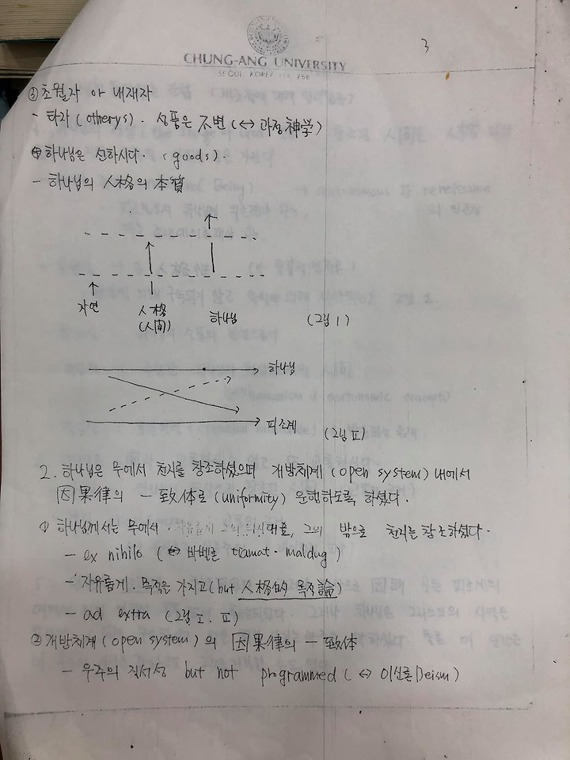 3
CHUNG-ANG UNIVERSITY
SEOUL, KOREA
③ 초월자 아 내재자
- 타자 (otherys). 성품은 不变 (↔ 과정神学)
④ 하나님은 선하시다. (goods).
- 하나님의 人格의 本質
자연 人格 (人间) 하나님 (그림 I)
하나님
피조계
(그림 II)
2. 하나님은 무에서 천지를 창조하셨으며 개방체계 (open system) 내에서
因果律의 一致体로 (uniformity) 운행하도록 하셨다.
① 하나님께서는 무에서, 그의 밖으로 천지를 창조하셨다.
- ex nihilo (↔ 바벨론 tiamat - maldug)
- 자유롭게. 목적은 가지고 (but 人格的 목적論)
- ad extra (그림 I. II)
② 개방체계 (open system)의 因果律의 一致体
- 우주의 질서성 but not programmed (↔ 이신론 Deism)